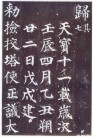 歸其
天寶十一載歲次
壬辰四月乙丑朔
廿二日戊戌建
勑撿挍塔使正議大